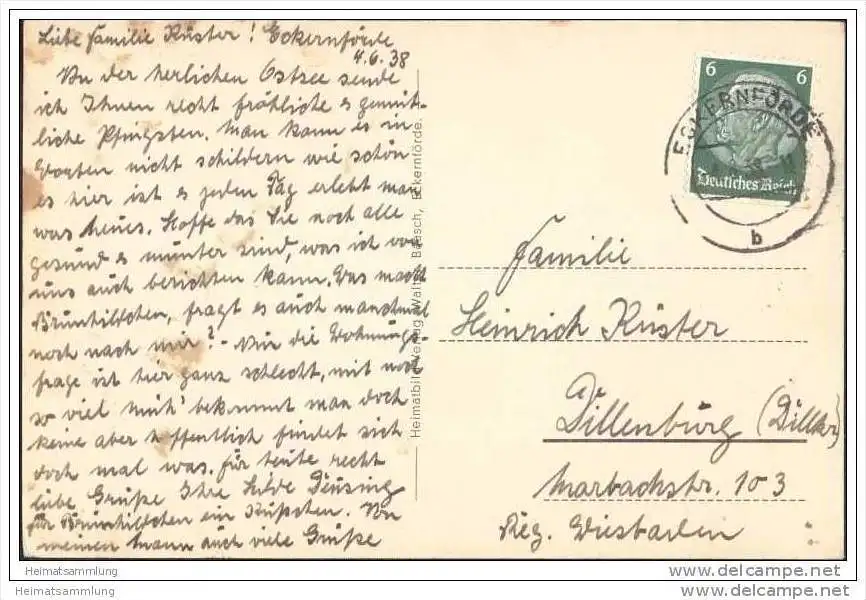 Liebe Familie Küster! Eckernförde
4.6.38
Von der herlichen Ostsee sende
ich Ihnen recht fröhliche & gemüt-
liche Pfingsten. Man kann es in
Worten nicht schildern wie schön
es hier ist & jeden Tag erlebt man
was neues. Hoffe das Sie noch alle
gesund & munter sind, was ich von
uns auch berichten kann. Was macht
Brunhildchen, fragt es auch manchmal
noch nach mir? - Nur die Wohnungs-
frage ist hier ganz schlecht, mit noch
so viel Müh' bekommt man doch
keine aber hoffentlich findet sich
doch mal was. Für heute recht
liebe Grüße Ihre Hilde Deusing
für Brunhildchen ein Küßchen. Von
meinen Mann auch viele Grüße
Heimatbild-Verlag Walter Baasch, Eckernförde.
6 6
Deutsches Reich
ECKERNFÖRDE
b
Familie
Heinrich Küster
Dillenburg (Dillkr)
Marbachstr. 103
Reg. Wiesbaden
Heimatsammlung
Heimatsammlung
www.delcampe.net
www.delcampe.net